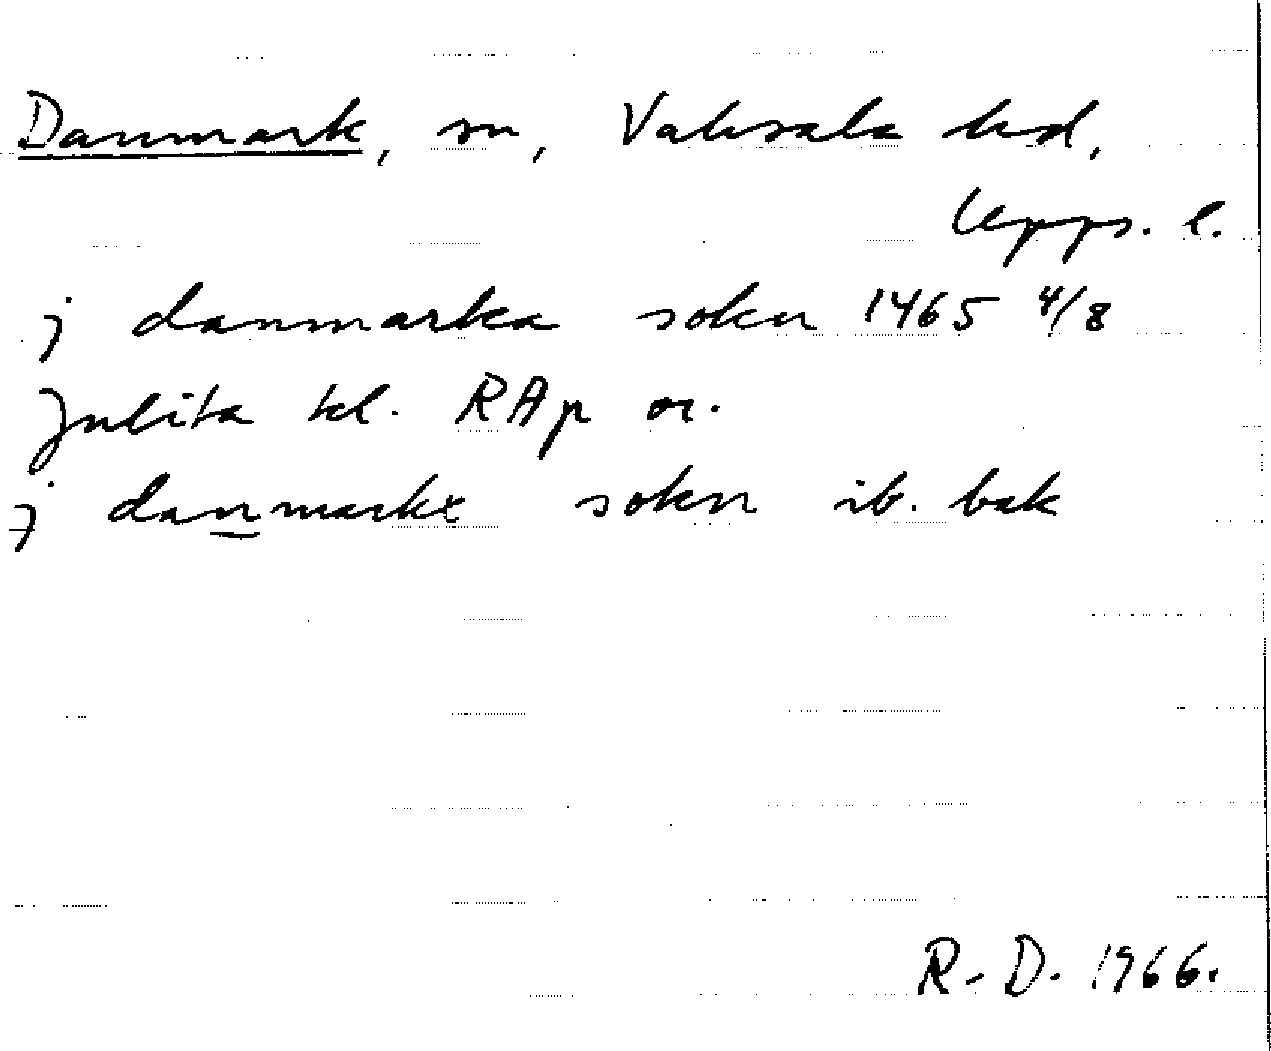 Danmark, sn, Vaksala hd,
Upps. l.
j danmarka sokn 1465 4/8
Julita kl. RAp or.
j danmarkx sokn ib. bak
R-D. 1966.